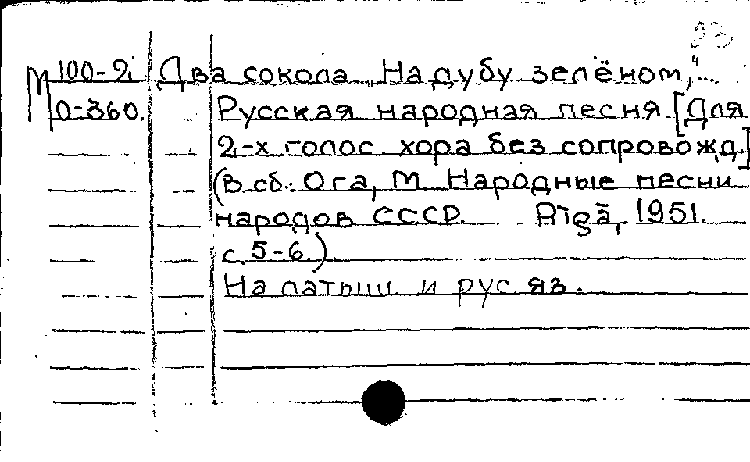 33
М 100-2 Два сокола „На дубу зелёном,"...
О-360. Русская народная песня. [Для
2-х голос хора без сопровожд.]
(В сб.: Ога, М. Народные песни
народов СССР. Rīgā, 1951.
с. 5-6.)
На латыш. и рус. яз.